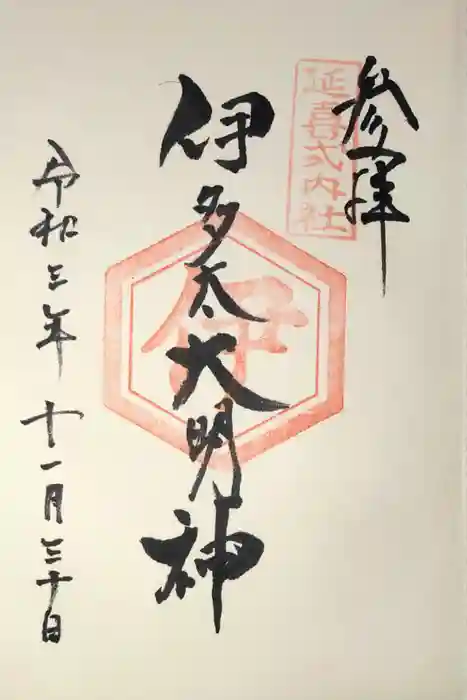 参拝
延喜式内社
伊多太大明神
伊
令和三年十一月三十日